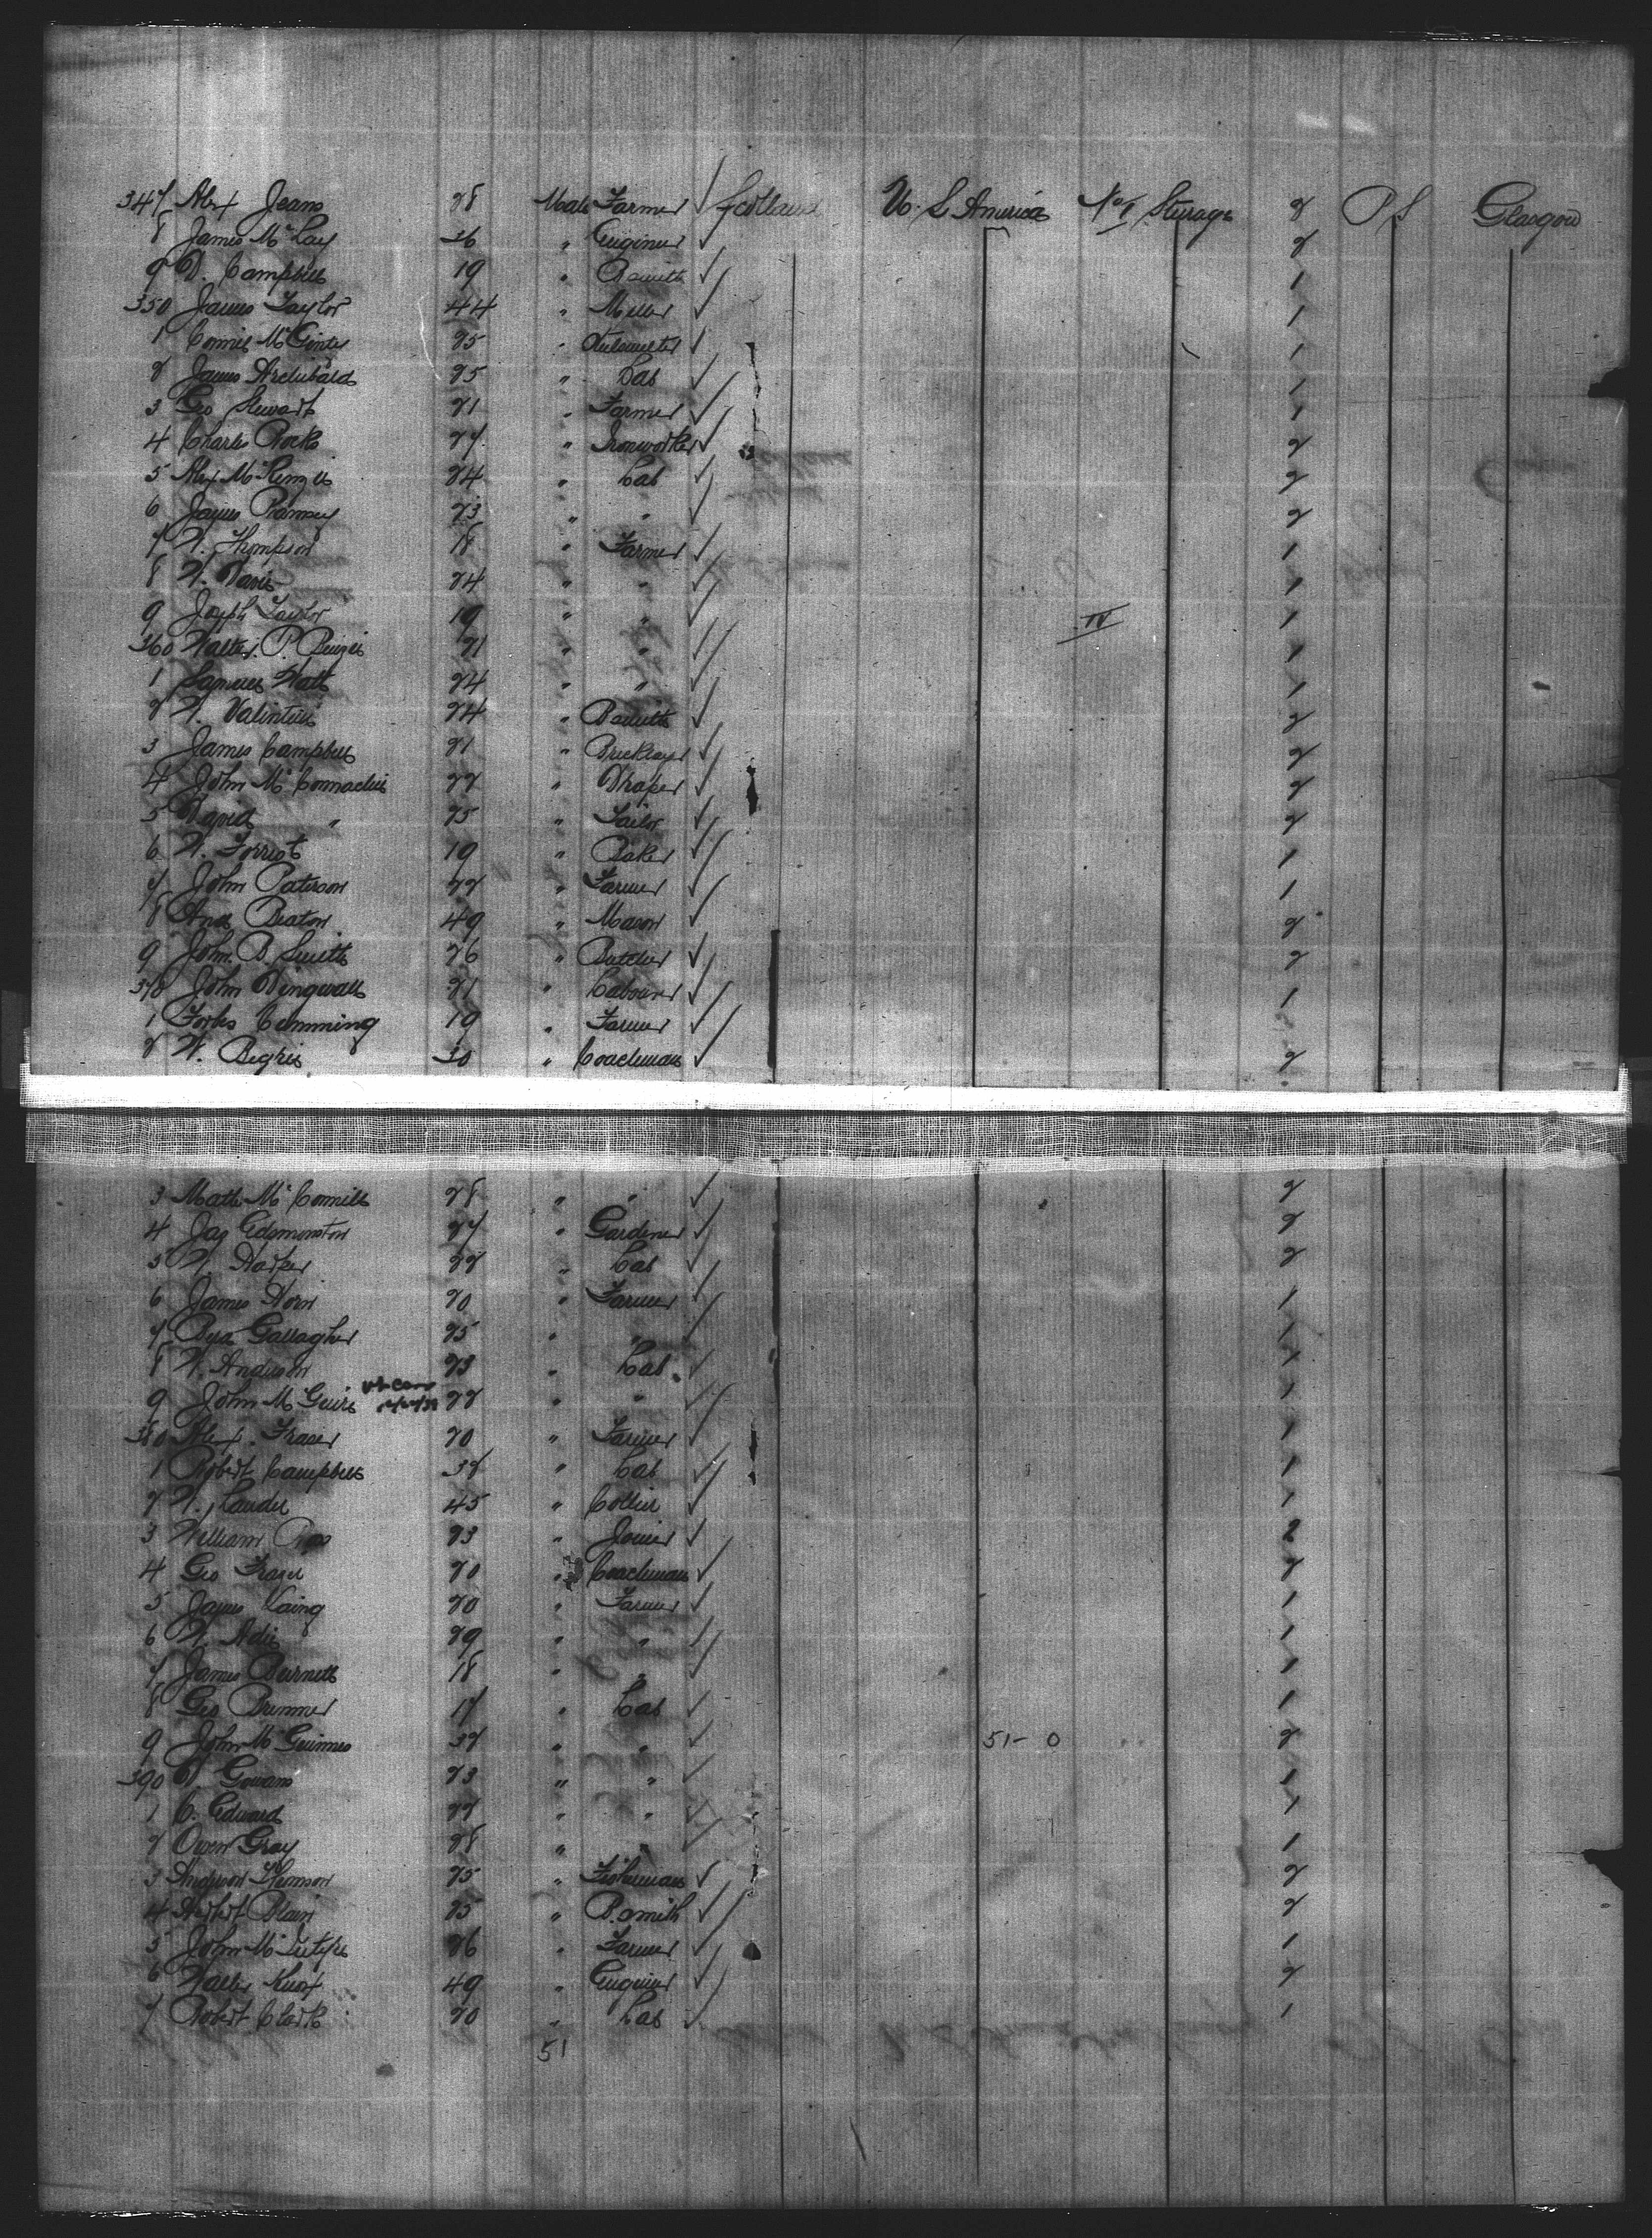 347 Alex Jeans 28 Male Farmer Scotland U. S America No 1 Sturage 2 P S Glasgow
8 James McLay 36 " Enginer 2
9 D. Campbell 19 " B smith 1
350 James Taylor 44 " Miller 1
1 25 " 1
2 James Archibald 25 " Lab 1
3 Geo Stewart 21 " Farmer 1
4 Charles Rock 27 " Ironworker 2
5 Alex McKenzie 24 " Lab 2
6 James Ramsey 23 " " 2
7 W. Thompson 18 " Farmer 1
8 W. Davie 24 " " 1
9 Joseph Taylor 19 " " IV 1
360 Walter P. 21 " " 1
1 Samuel Watt 24 " " 1
2 W. Valentine 24 " B smith 2
3 James Campbell 21 " Bricklayer 2
4 John McConnachie 22 " Draper 2
5 David " 25 " Tailor 2
6 W. Forrest 19 " Baker 1
7 John Paterson 22 " Farmer 1
8 And Beaton 49 " Mason 2
9 John B. Smith 26 " Butcher 2
370 John Dingwall 21 " Labourer 1
1 Forbes Cumming 19 " Farmer 1
2 W. Begbie 30 " Coachman 2
3 Math McConnell 28 " " 2
4 Jas Edmonston 27 " Gardener 2
5 W. Harper 22 " Lab 2
6 James Horn 20 " Farmer 1
7 Gallagher 25 " " 1
8 W. Anderson 23 " Lab. 1
9 John McGuire 22 " " 1
380 Alex. Fraser 20 " Farmer 1
1 Robert Campbell 32 " Lab 1
2 W. Lauder 45 " Collier 1
3 William Ross 23 " Joiner 2
4 Geo Fraser 20 " Coachman 2
5 James Laing 20 " Farmer 1
6 W. Adie 29 " " 1
7 James Burnett 18 " " 1
8 Geo Brunner 17 " Lab 1
9 John McGuinnes 32 " " 51 - 0 2
390 Gowans 23 " " 1
1 C. Edward 22 " " 1
2 Owen Gray 28 " " 1
3 Anderson Thomson 25 " Fisherman 2
4 Herbert Blain 25 " B. smith 2
5 John McIntyre 26 " Farmer 1
6 Walter Knox 49 " Enginer 2
7 Robert Clark 20 " Lab 1
51